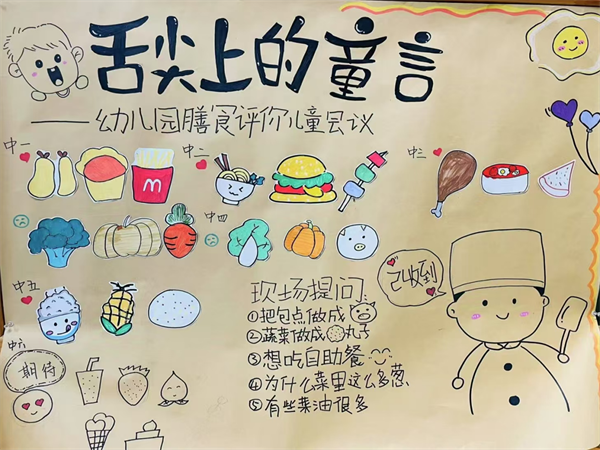 舌尖上的童言
——幼儿园膳食评价儿童会议
中一
中二
中三
中四
中五
中六
期待
M
现场提问
①把包点做成
②蔬菜做成丸子
③想吃自助餐
④为什么菜里这么多葱
⑤有些菜油很多
“已收到”